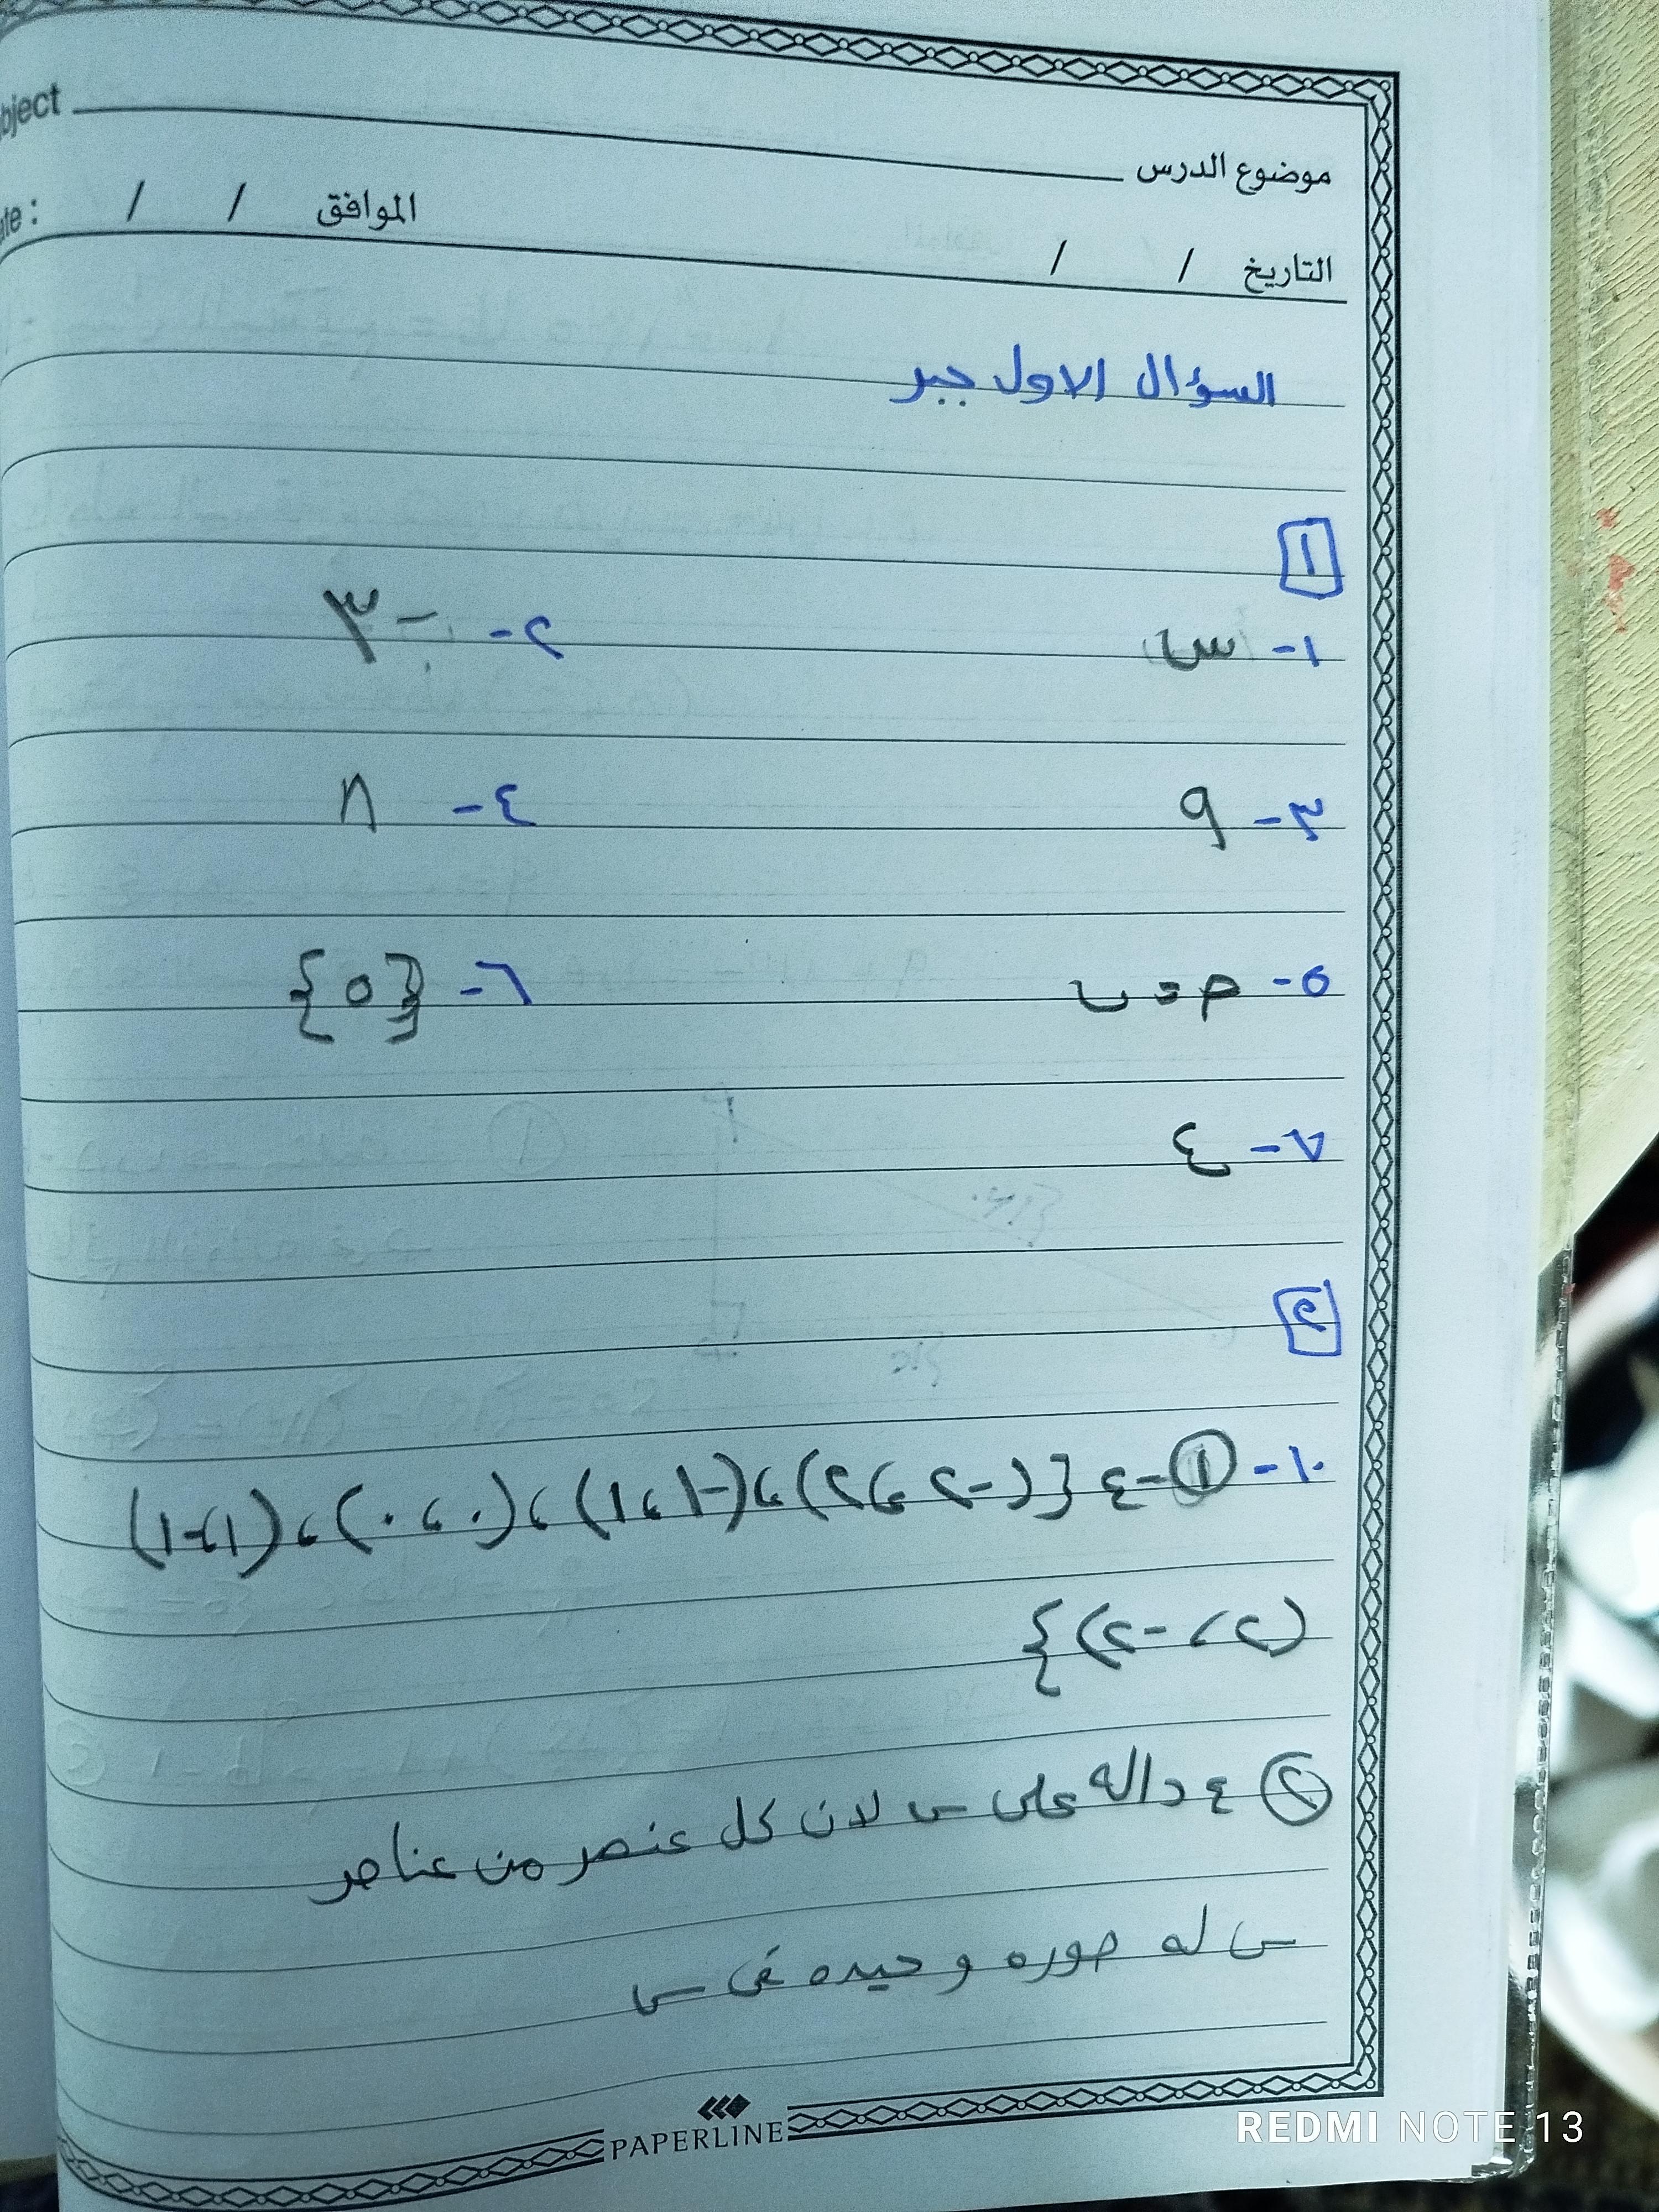 bject موضوع الدرس
ate : / / الموافق / / التاريخ
السؤال الاول جبر
١
١- س ٢- -٣
٣- ٩ ٤- ٨
٥- م = ب ٦- {٥}
٧- ع
٢
١٠- ① - ع {(-٢ ، ٢) ، (-١ ، ١) ، (٠ ، ٠) ، (١ ، -١) ،
(٢ ، -٢)}
② ع داله على س لان كل عنصر من عناصر
س له صوره وحيده فى س
PAPERLINE
REDMI NOTE 13